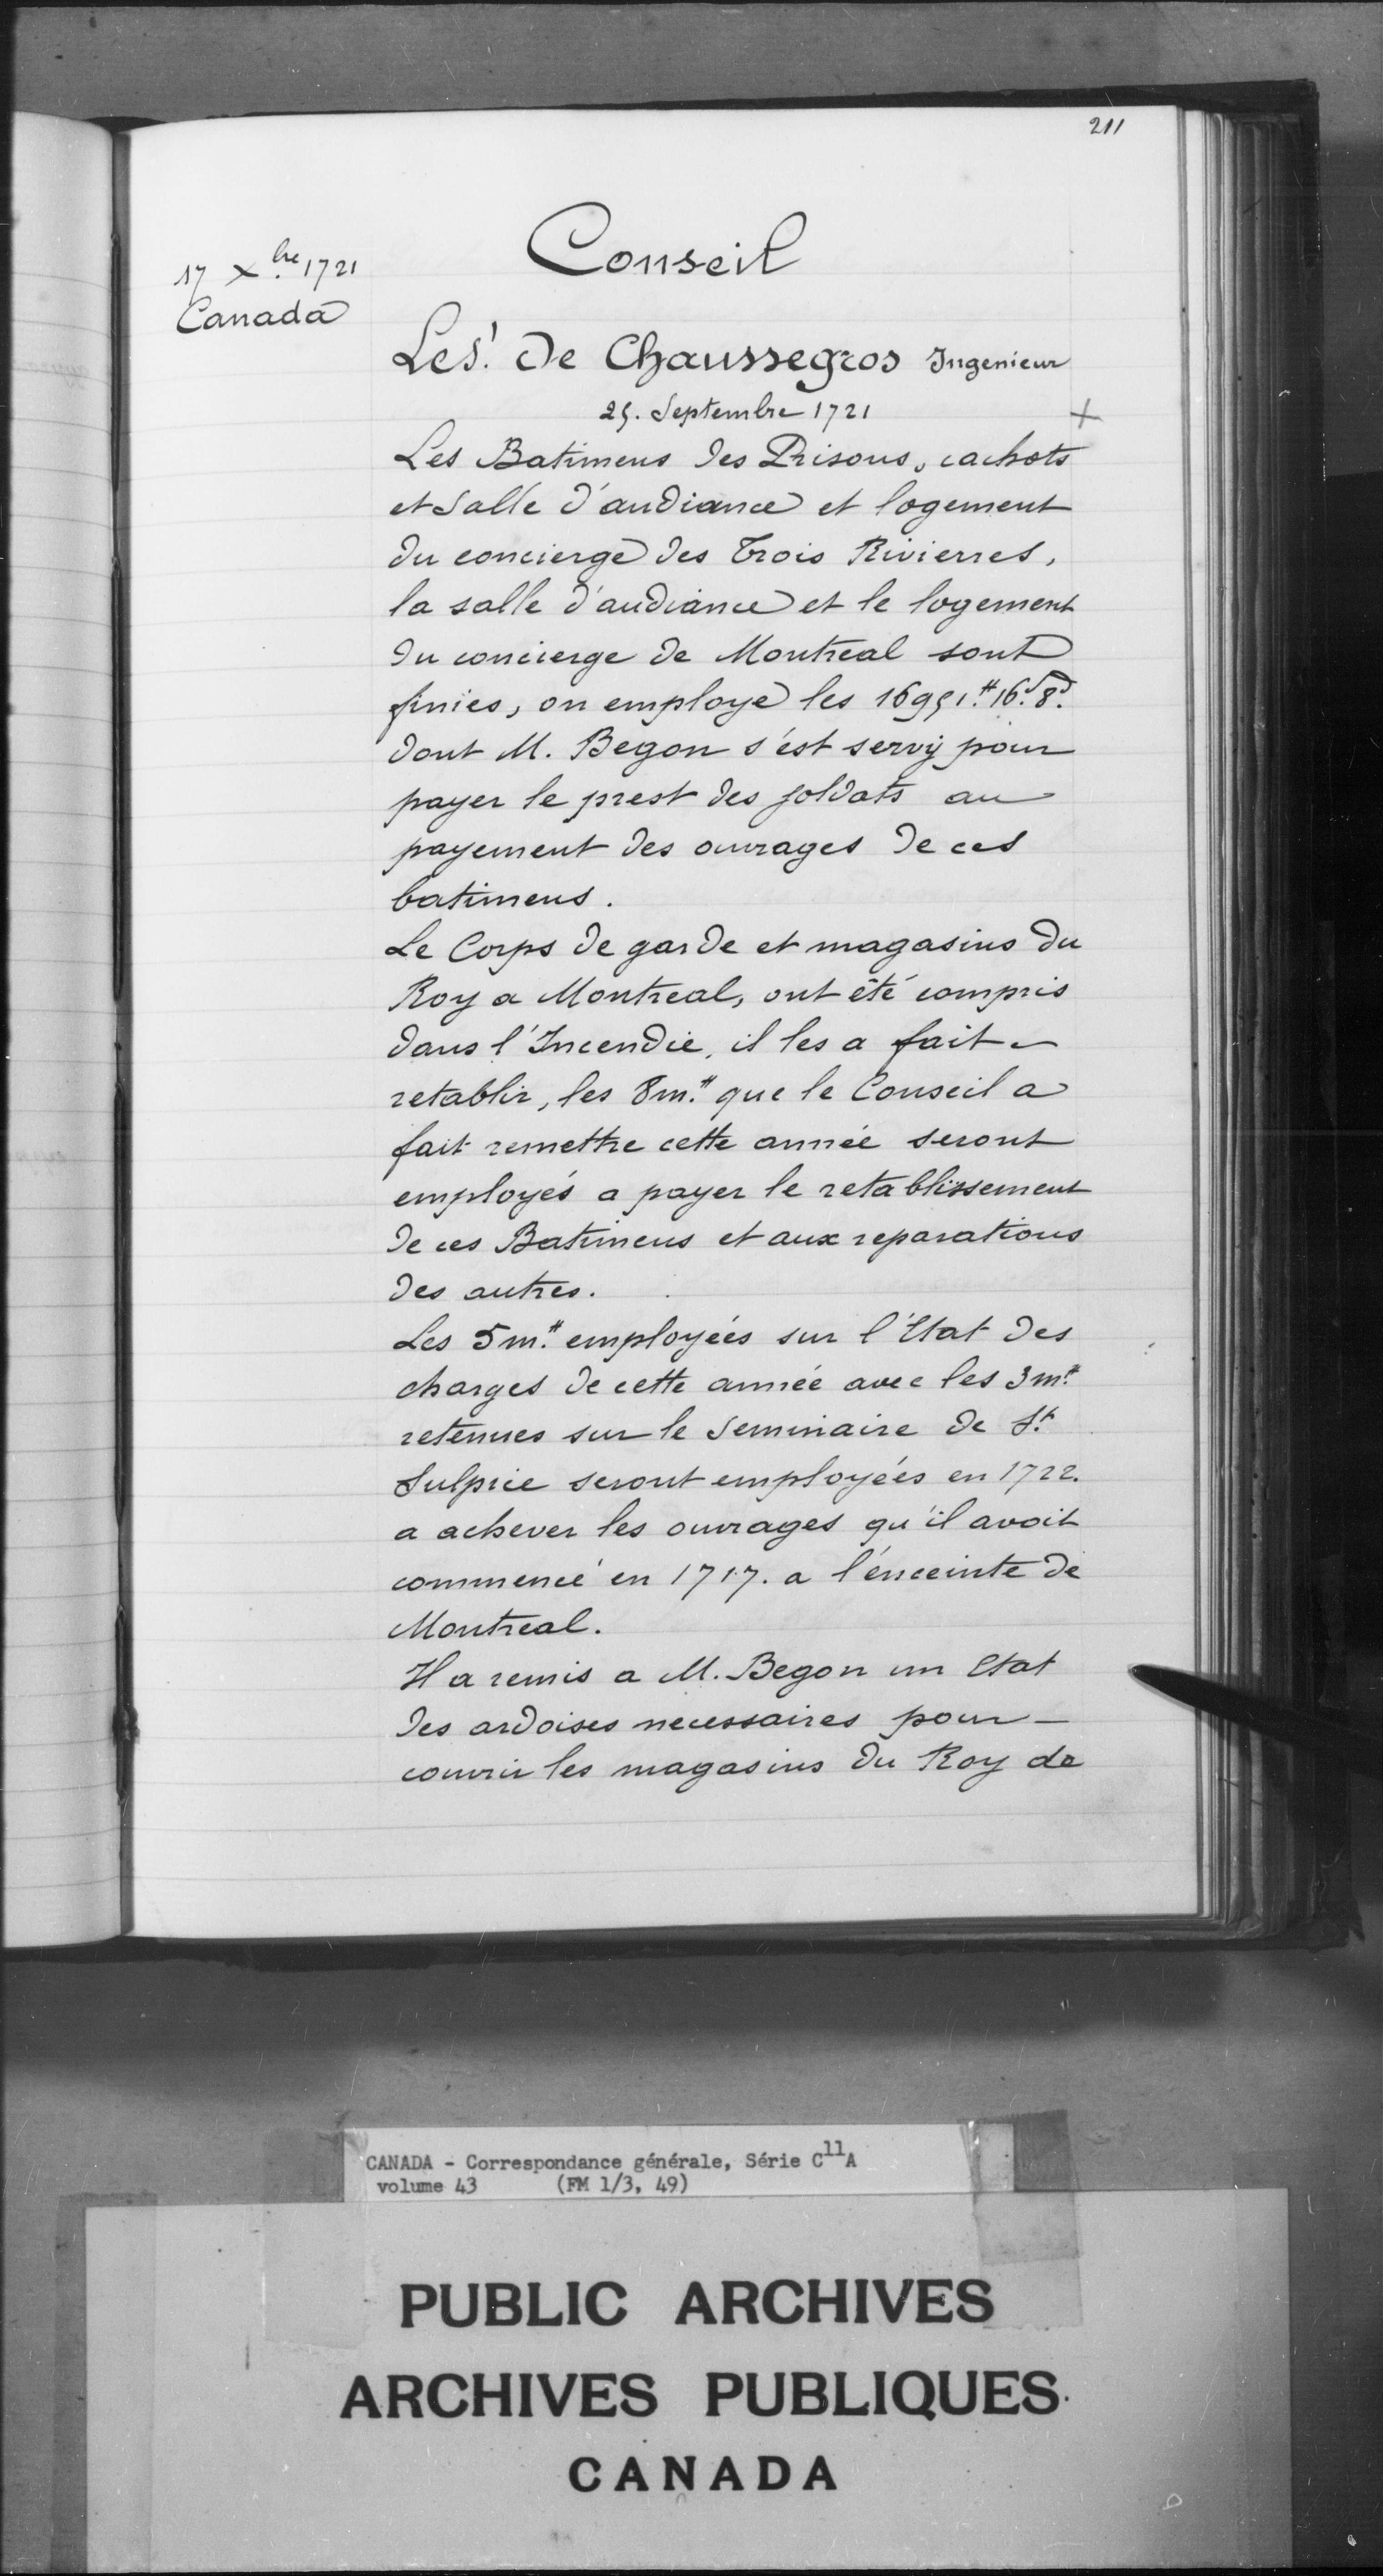 211
17 Xbre 1721
Canada
Conseil
Le Sr. de Chaussegros Ingenieur
25. Septembre 1721 +
Les Batimens des Prisons, cachots
et Salle d'audiance et logement
du concierge des Trois Rivierres,
la salle d'audiance et le logement
du concierge de Montreal sont
finies, on employe les 16951.# 16.s 8.d
dont M. Begon s'est servÿ pour
payer le prest des soldats au
payement des ouvrages de ces
batimens.
Le Corps de garde et magasins du
Roy a Montreal, ont été compris
dans l'Incendie, il les a fait -
retablir, les 8m.# que le Conseil a
fait remettre cette année seront
employés a payer le retablissement
de ces Batimens et aux reparations
des autres.
Les 5m.# employées sur l'Etat des
charges de cette année avec les 3m#
retenues sur le Seminaire de St.
Sulpice seront employées en 1722.
a achever les ouvrages qu'il avoit
commencé en 1717. a l'énceinte de
Montreal.
Il a remis a M. Begon un Etat
des ardoises necessaires pour -
couvrir les magasins du Roy de
CANADA - Correspondance générale, Série C11A
volume 43 (FM 1/3, 49)
PUBLIC ARCHIVES
ARCHIVES PUBLIQUES
CANADA